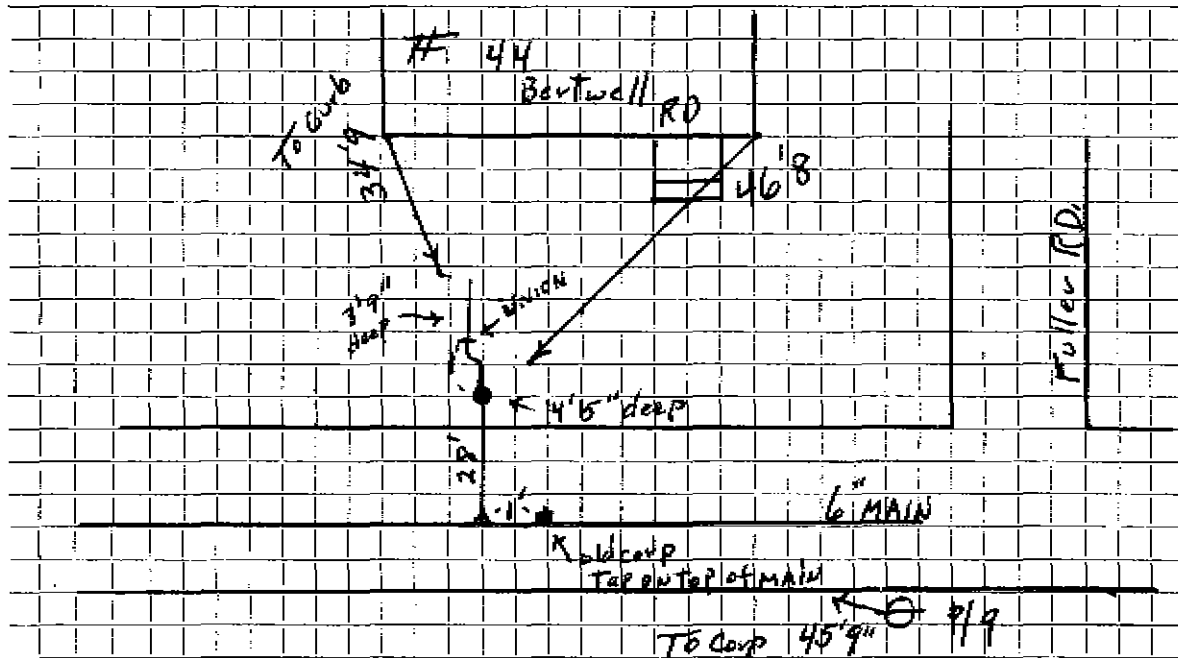 # 44
Bertwell
RD
To Curb
34'9
46'8
Fuller RD.
3'9"
UNION
4'5" deep
28'
1'
6" MAIN
old corp
Tap on Top of MAIN
To Corp 45'9"